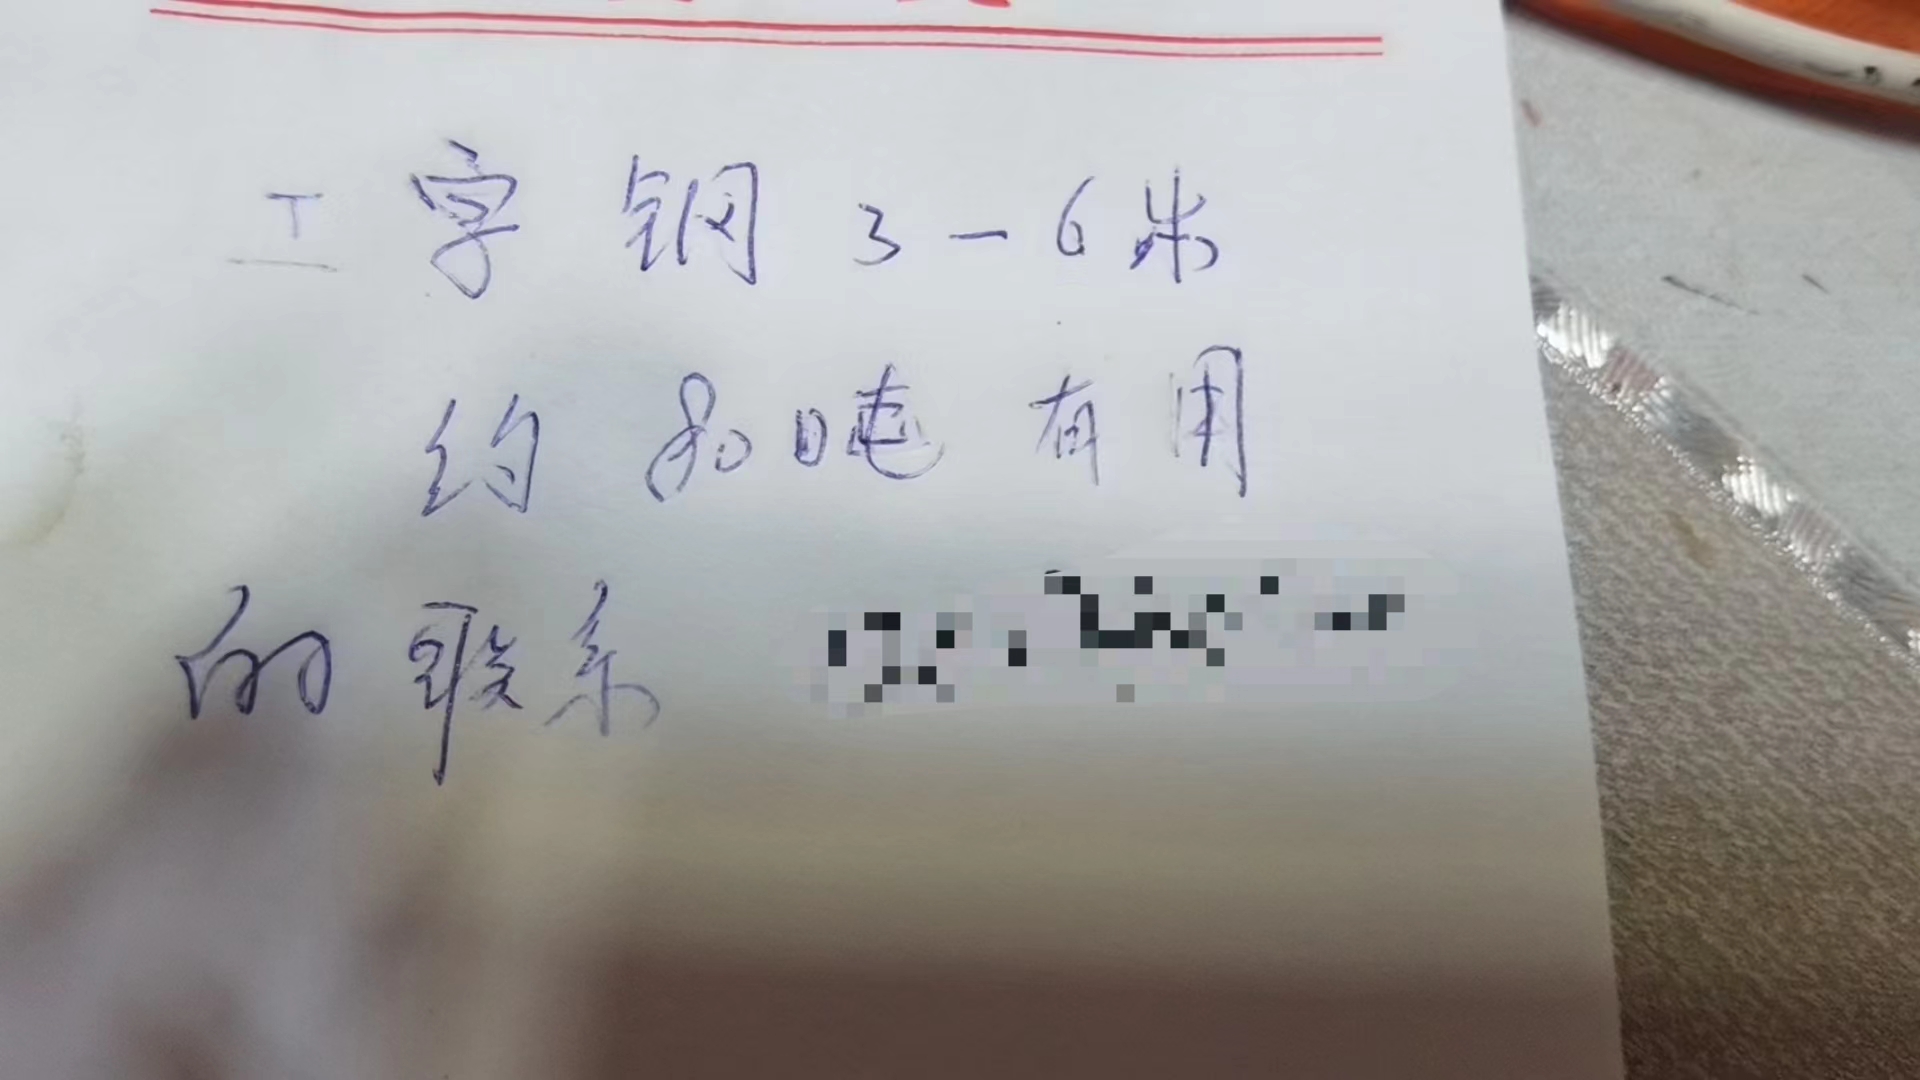 工字钢3-6米
约80吨有用
的联系